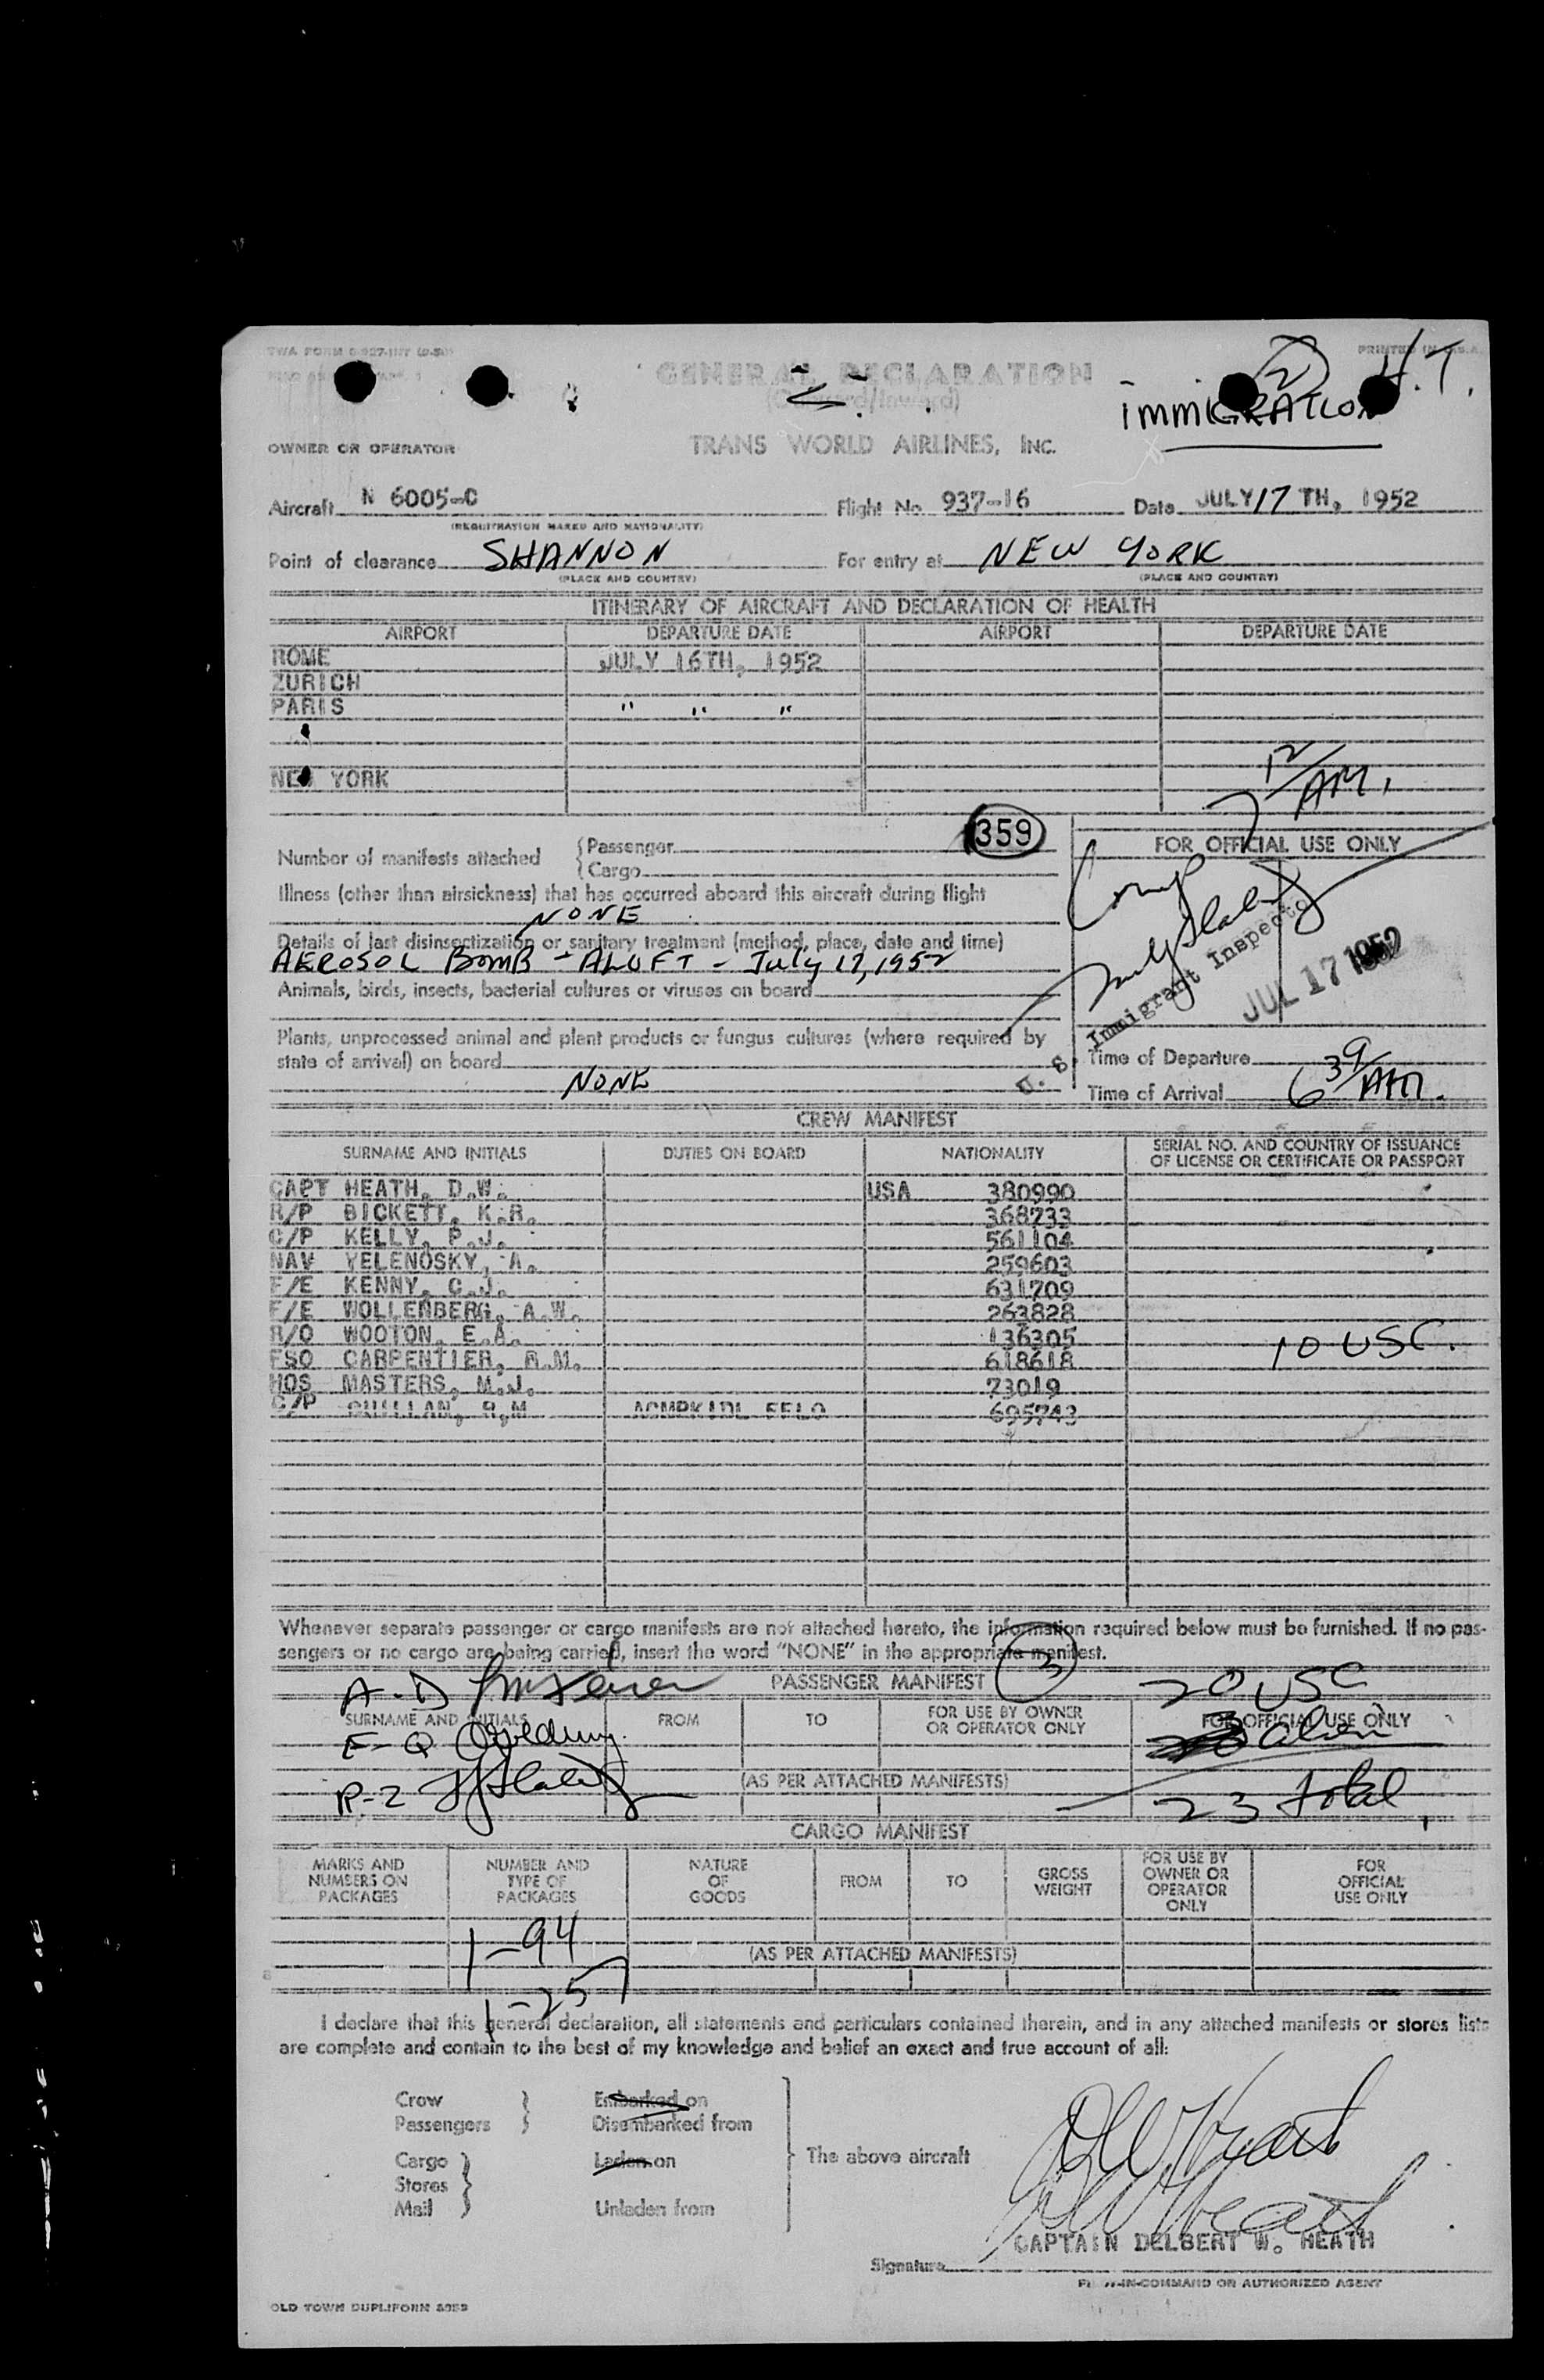 TWA FORM
PRINTED IN U.S.A.
GENERAL DECLARATION
(Outward/Inward)
2 H.T.
IMMIGRATION
OWNER OR OPERATOR TRANS WORLD AIRLINES, INC.
Aircraft N 6005-C Flight No. 937-16 Date JULY 17 TH, 1952
(REGISTRATION MARKS AND NATIONALITY)
Point of clearance SHANNON For entry at NEW YORK
(PLACE AND COUNTRY) (PLACE AND COUNTRY)
ITINERARY OF AIRCRAFT AND DECLARATION OF HEALTH
AIRPORT DEPARTURE DATE AIRPORT DEPARTURE DATE
ROME JULY 16TH, 1952
ZURICH
PARIS " " "
NEW YORK
7 12/AM.
359
Number of manifests attached {Passenger
{Cargo
FOR OFFICIAL USE ONLY
Illness (other than airsickness) that has occurred aboard this aircraft during flight
NONE
Details of last disinsectization or sanitary treatment (method, place, date and time)
AEROSOL BOMB - ALOFT - July 17, 1952
Animals, birds, insects, bacterial cultures or viruses on board
Comp
U. S. Immigrant Inspector
JUL 17 1952
Plants, unprocessed animal and plant products or fungus cultures (where required by
state of arrival) on board
NONE
Time of Departure
Time of Arrival 6 39/AM.
CREW MANIFEST
SURNAME AND INITIALS DUTIES ON BOARD NATIONALITY SERIAL NO. AND COUNTRY OF ISSUANCE
OF LICENSE OR CERTIFICATE OR PASSPORT
CAPT HEATH, D.W. USA 380990
R/P BICKETT, K.R. 368733
C/P KELLY, P.J. 561104
NAV YELENOSKY, A. 259603
F/E KENNY, C.J. 631709
F/E WOLLENBERG, A.W. 263828
R/O WOOTON, E.A. 136305
10 USC.
FSO CARPENTIER, R.M. 618618
HOS MASTERS, M.J. 73019
C/P R,M 695743
Whenever separate passenger or cargo manifests are not attached hereto, the information required below must be furnished. If no pas-
sengers or no cargo are being carried, insert the word "NONE" in the appropriate manifest.
PASSENGER MANIFEST 3
A-D 20 USC
SURNAME AND INITIALS FROM TO FOR USE BY OWNER
OR OPERATOR ONLY FOR OFFICIAL USE ONLY
E-Q 3 alien
(AS PER ATTACHED MANIFESTS)
R-Z 23 total
CARGO MANIFEST
MARKS AND
NUMBERS ON
PACKAGES NUMBER AND
TYPE OF
PACKAGES NATURE
OF
GOODS FROM TO GROSS
WEIGHT FOR USE BY
OWNER OR
OPERATOR
ONLY FOR
OFFICIAL
USE ONLY
1-94
(AS PER ATTACHED MANIFESTS)
1-257
I declare that this general declaration, all statements and particulars contained therein, and in any attached manifests or stores lists
are complete and contain to the best of my knowledge and belief an exact and true account of all:
Crew } Embarked on
Passengers } Disembarked from
Cargo } Laden on The above aircraft
Stores
Mail } Unladen from
DW Heath
DW Heath
CAPTAIN DELBERT W. HEATH
Signature
PILOT-IN-COMMAND OR AUTHORIZED AGENT
OLD TOWN DUPLIFORM